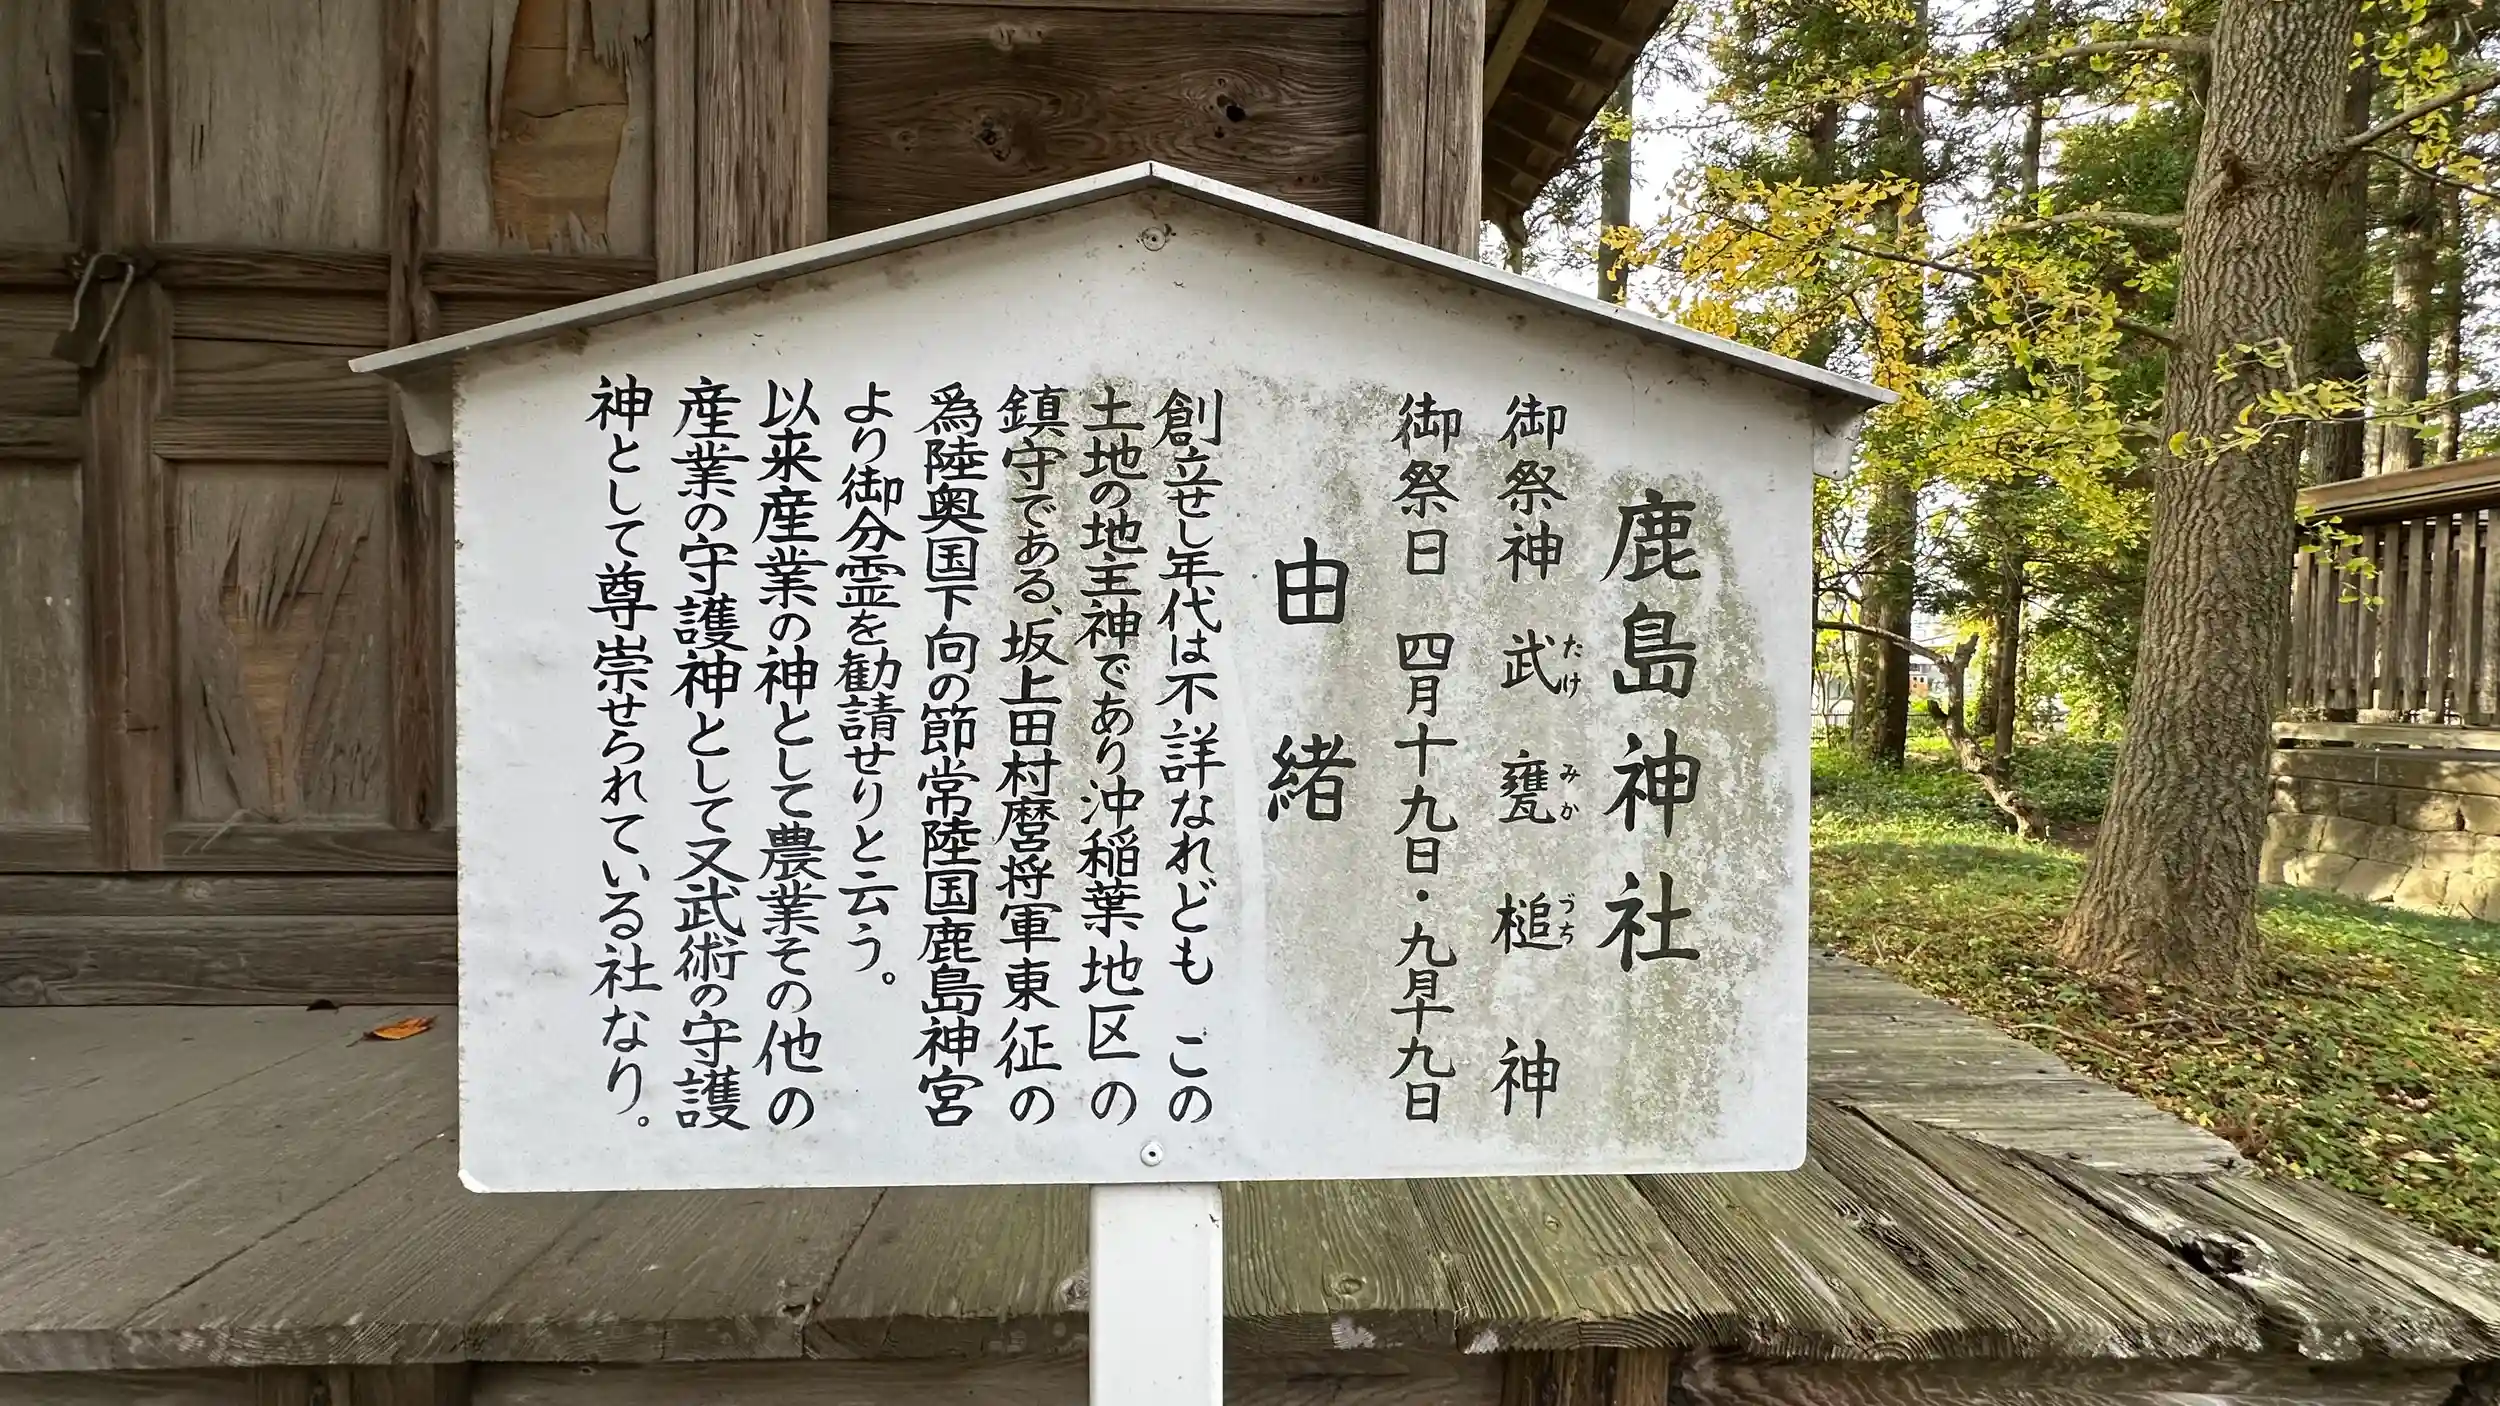 鹿島神社
御祭神 武甕槌神
たけ みか づち
御祭日 四月十九日・九月十九日
由緒
創立せし年代は不詳なれども この
土地の地主神であり沖稲葉地区の
鎮守である、坂上田村麿将軍東征の
為陸奥国下向の節常陸国鹿島神宮
より御分霊を勧請せりと云う。
以来産業の神として農業その他の
産業の守護神として又武術の守護
神として尊崇せられている社なり。